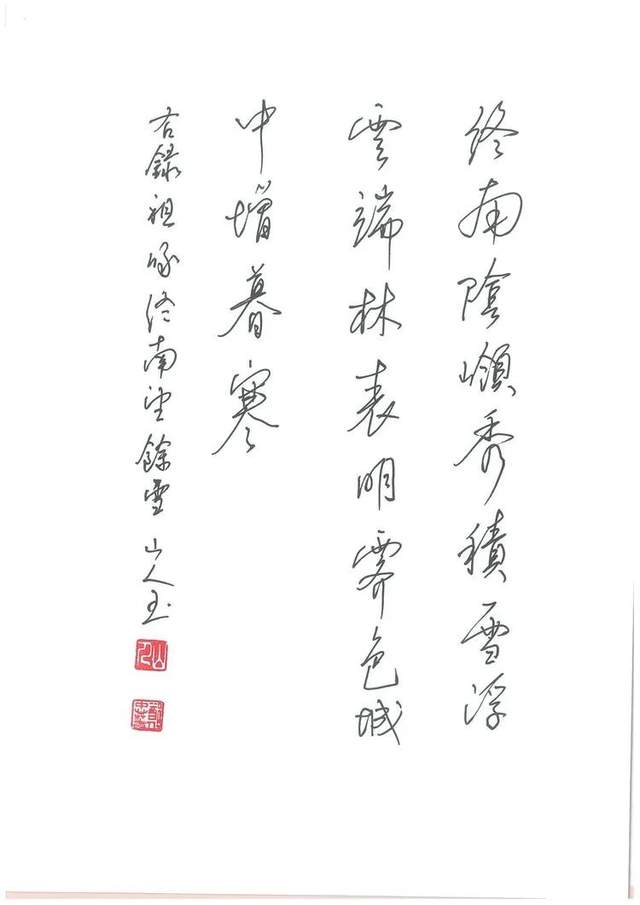 終南陰嶺秀積雪浮
雲端林表明霽色城
中增暮寒
右錄祖詠終南望餘雪 山人玉
山人